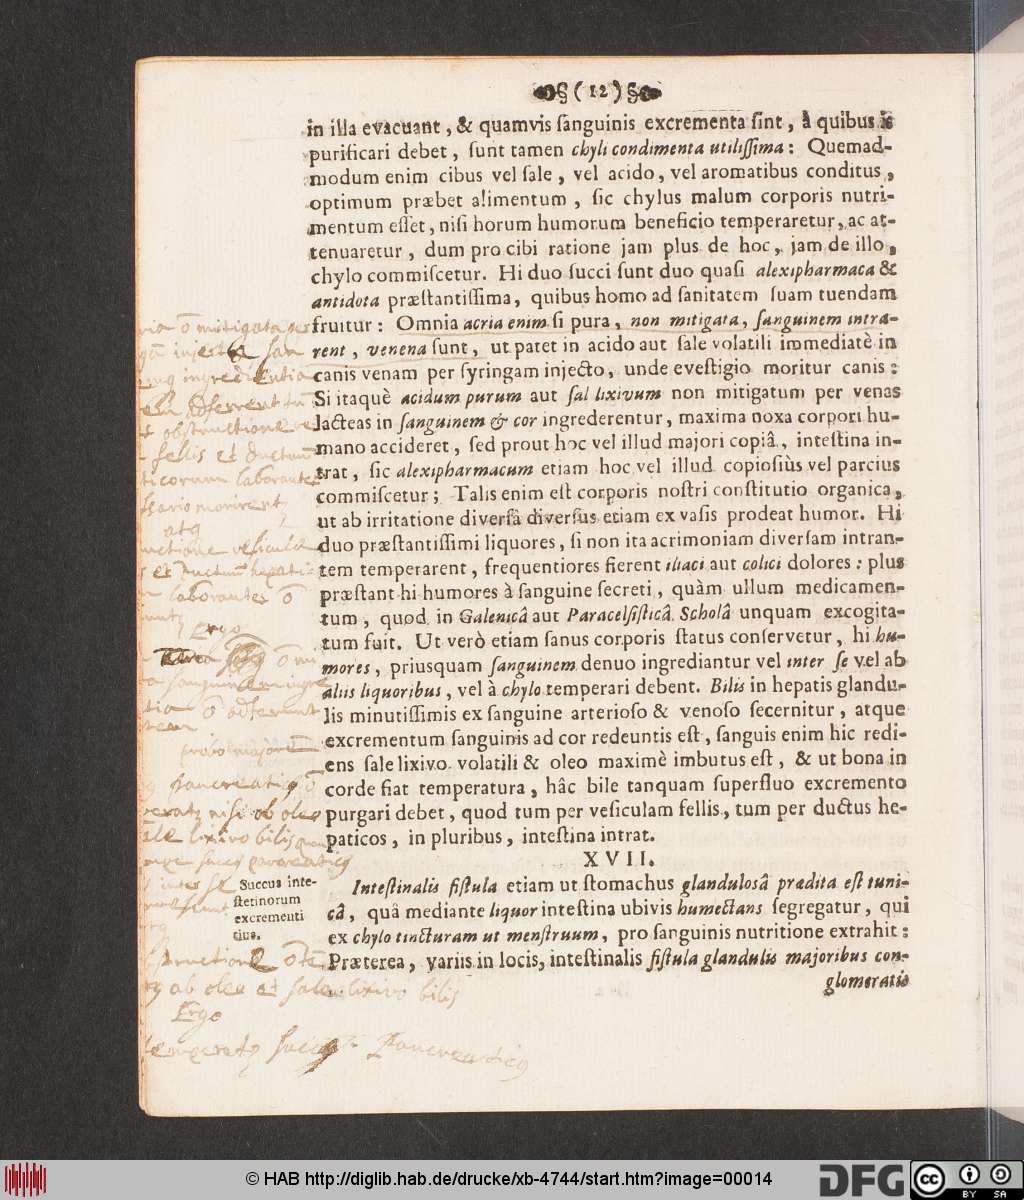 ( 12 )
in illa evacuant, & quamvis ſanguinis excrementa ſint, à quibus is
purificari debet, ſunt tamen chyli condimenta utiliſſima: Quemad-
modum enim cibus vel ſale, vel acido, vel aromatibus conditus,
optimum præbet alimentum, ſic chylus malum corporis nutri-
mentum eſſet, niſi horum humorum beneficio temperaretur, ac at-
tenuaretur, dum pro cibi ratione jam plus de hoc, jam de illo,
chylo commiſcetur. Hi duo ſucci ſunt duo quaſi alexipharmaca &
antidota præſtantiſſima, quibus homo ad ſanitatem ſuam tuendam
fruitur: Omnia acria enim ſi pura, non mitigata, ſanguinem intra-
rent, venena ſunt, ut patet in acido aut ſale volatili immediatè in
canis venam per ſyringam injecto, unde eveſtigio moritur canis:
Si itaquè acidum purum aut ſal lixivum non mitigatum per venas
lacteas in ſanguinem & cor ingrederentur, maxima noxa corpori hu-
mano accideret, ſed prout hoc vel illud majori copiâ, inteſtina in-
trat, ſic alexipharmacum etiam hoc vel illud copioſiùs vel parcius
commiſcetur; Talis enim eſt corporis noſtri conſtitutio organica,
ut ab irritatione diverſâ diverſus etiam ex vaſis prodeat humor. Hi
duo præſtantiſſimi liquores, ſi non ita acrimoniam diverſam intran-
tem temperarent, frequentiores fierent iliaci aut colici dolores: plus
præſtant hi humores à ſanguine ſecreti, quàm ullum medicamen-
tum, quod in Galenicâ aut Paracelſiſticâ Scholâ unquam excogita-
tum fuit. Ut verò etiam ſanus corporis ſtatus conſervetur, hi hu-
mores, priusquam ſanguinem denuo ingrediantur vel inter ſe vel ab
aliis liquoribus, vel à chylo temperari debent. Bilis in hepatis glandu-
lis minutiſſimis ex ſanguine arterioſo & venoſo ſecernitur, atque
excrementum ſanguinis ad cor redeuntis eſt, ſanguis enim hic redi-
ens ſale lixivo volatili & oleo maximè imbutus eſt, & ut bona in
corde fiat temperatura, hâc bile tanquam ſuperfluo excremento
purgari debet, quod tum per veſiculam fellis, tum per ductus he-
paticos, in pluribus, inteſtina intrat.
XVII.
Succus inte-
ſtetinorum
excrementi
tius.
Inteſtinalis fiſtula etiam ut ſtomachus glandulosâ prædita eſt tuni-
câ, quâ mediante liquor inteſtina ubivis humectans ſegregatur, qui
ex chylo tincturam ut menſtruum, pro ſanguinis nutritione extrahit:
Præterea, variis in locis, inteſtinalis fiſtula glandulis majoribus con-
glomeratis
mitigata
ſan
ingredientia
obstructione
fellis et ductum
ticorum laborantes
veſiculæ
laborantes
Ergo
niſi ob oleo
lixivo bilis
inter ſe
ab oleo et ſale lixivo bilis
Ergo
Pancreaticq
© HAB http://diglib.hab.de/drucke/xb-4744/start.htm?image=00014
DFG
cc
BY SA